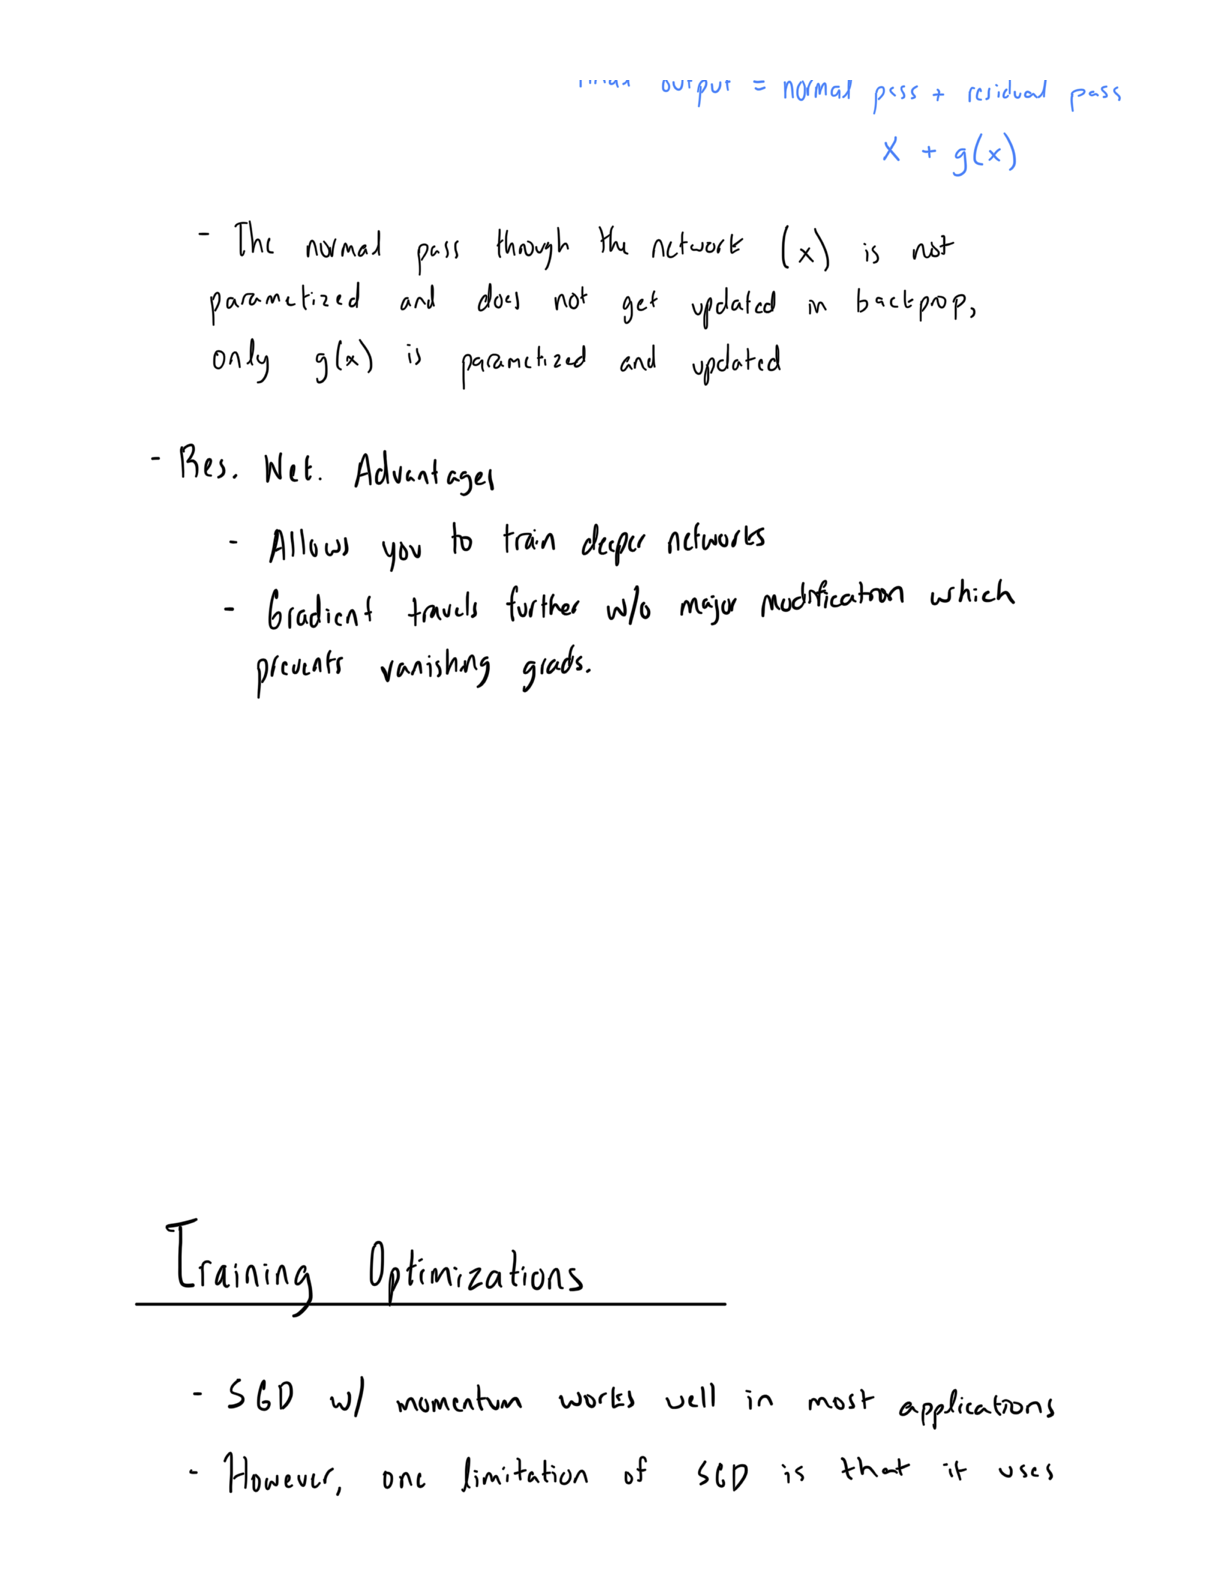 output = normal pass + residual pass
x + g(x)
- The normal pass through the network (x) is not
parametized and does not get updated in backprop,
only g(x) is parametized and updated
- Res. Net. Advantages
- Allows you to train deeper networks
- Gradient travels further w/o major modification which
prevents vanishing grads.
Training Optimizations
- SGD w/ momentum works well in most applications
- However, one limitation of SGD is that it uses